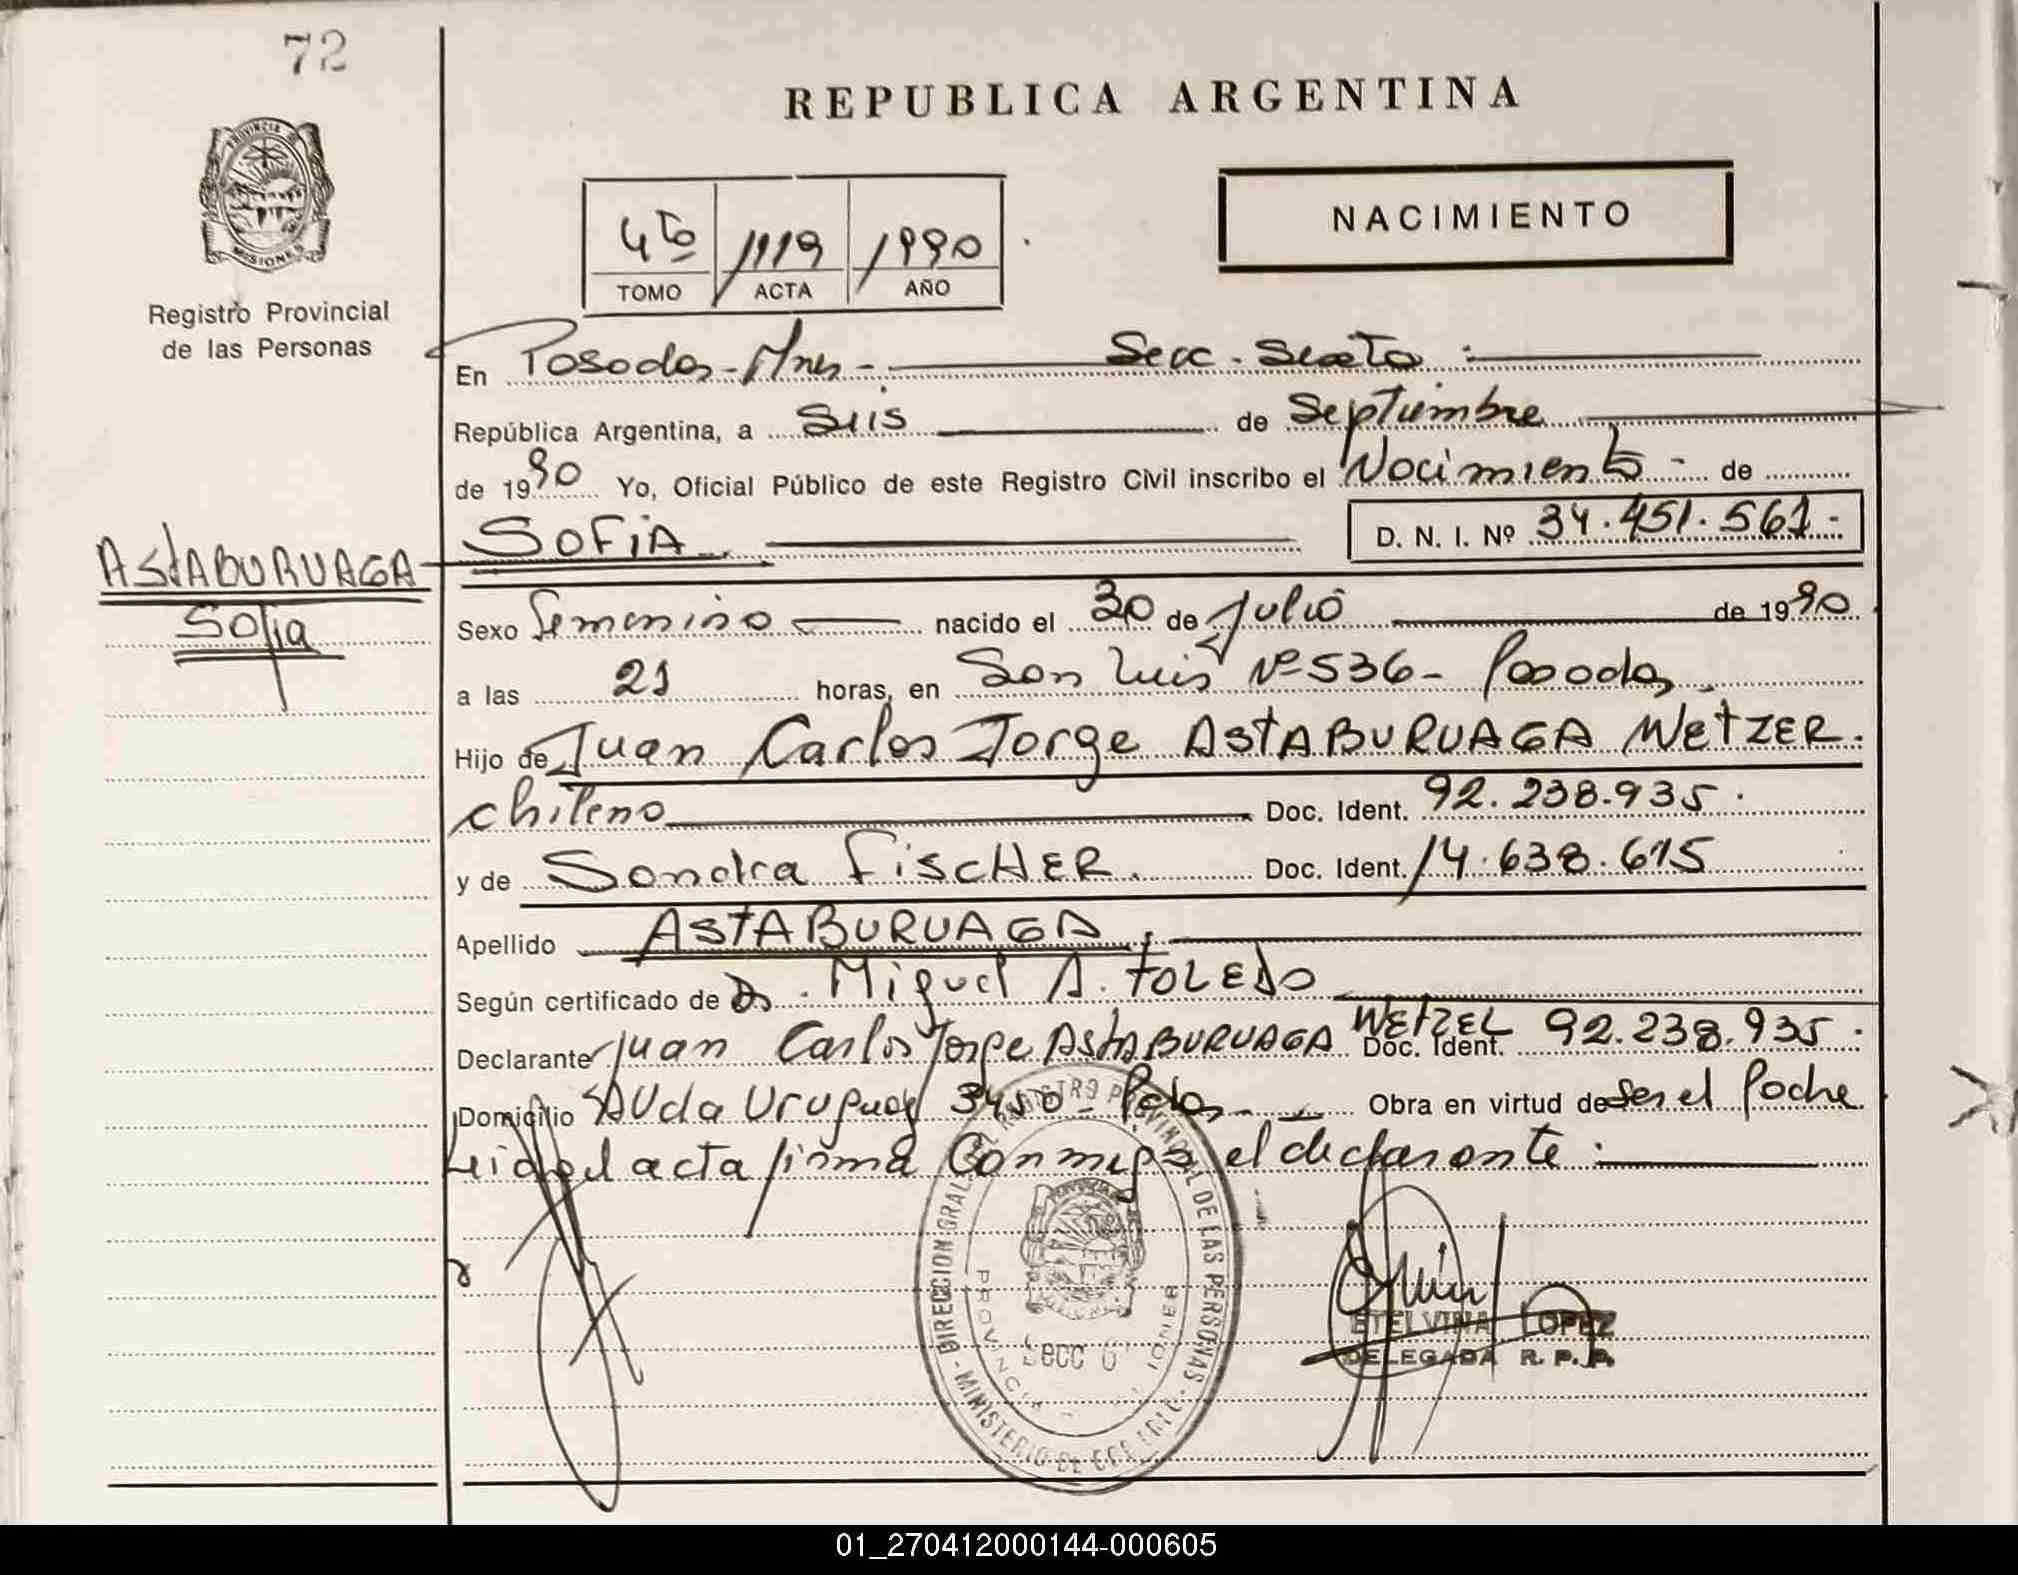 72
REPUBLICA ARGENTINA
PROVINCIA DE
MISIONES
Registro Provincial
de las Personas
NACIMIENTO
4to 1119 1990
TOMO ACTA AÑO
En Posadas - Mnes - Secc. Sexta :
República Argentina, a Seis de Septiembre
de 1990 Yo, Oficial Público de este Registro Civil inscribo el Nacimiento - de
ASTABURUAGA
Sofia
SOFIA D. N. I. Nº 34.451.561.-
Sexo Femenino nacido el 30 de Julio de 1990
a las 21 horas, en San Luis Nº 536 - Posadas.
Hijo de Juan Carlos Jorge ASTABURUAGA WETZER.
chileno Doc. Ident. 92.238.935.
y de Sandra FISCHER. Doc. Ident. 14.638.615
Apellido ASTABURUAGA.
Según certificado de Dr. Miguel A. TOLEDO
Declarante Juan Carlos Jorge ASTABURUAGA WETZEL Doc. Ident. 92.238.935.
Domicilio Avda Uruguay 3450 - Pdas - Obra en virtud de Ser el Padre
Leida el acta firma Conmigo el declarante :
DIRECCION GRAL. DEL REGISTRO PROVINCIAL DE LAS PERSONAS - MINISTERIO DE
PROVINCIA MISIONES
Secc 6
ETELVINA LOPEZ
DELEGADA R. P. P.
01_270412000144-000605